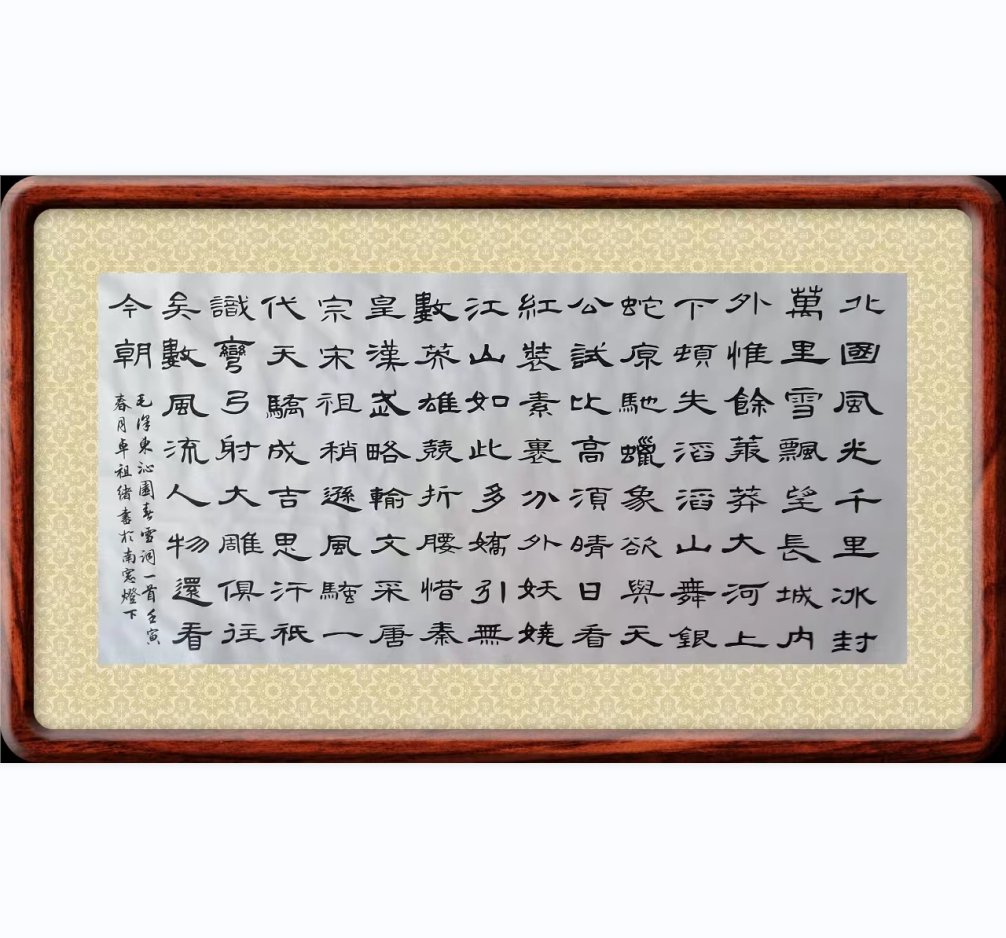 北國風光千里冰封
萬里雪飄望長城内
外惟餘莽莽大河上
下頓失滔滔山舞銀
蛇原馳蠟象欲與天
公試比高須晴日看
紅裝素裹分外妖嬈
江山如此多嬌引無
數英雄競折腰惜秦
皇漢武略輸文采唐
宗宋祖稍遜風騷一
代天驕成吉思汗祇
識彎弓射大雕俱往
矣數風流人物還看
今朝
毛澤東沁園春雪詞一首壬寅
春月卓祖緒書於南窓燈下